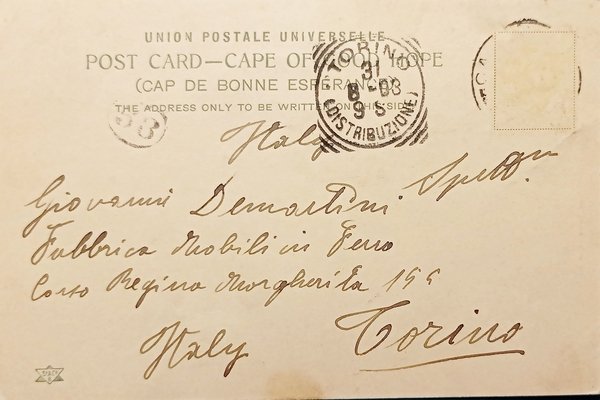 UNION POSTALE UNIVERSELLE
POST CARD—CAPE OF GOOD HOPE
(CAP DE BONNE ESPÉRANCE)
THE ADDRESS ONLY TO BE WRITTEN ON THIS SIDE
TORINO
31
8-03
9 S
(DISTRIBUZIONE)
Italy
Giovanni Demartini
Fabbrica Mobili in Ferro
Corso Regina Margherita
Italy
Torino